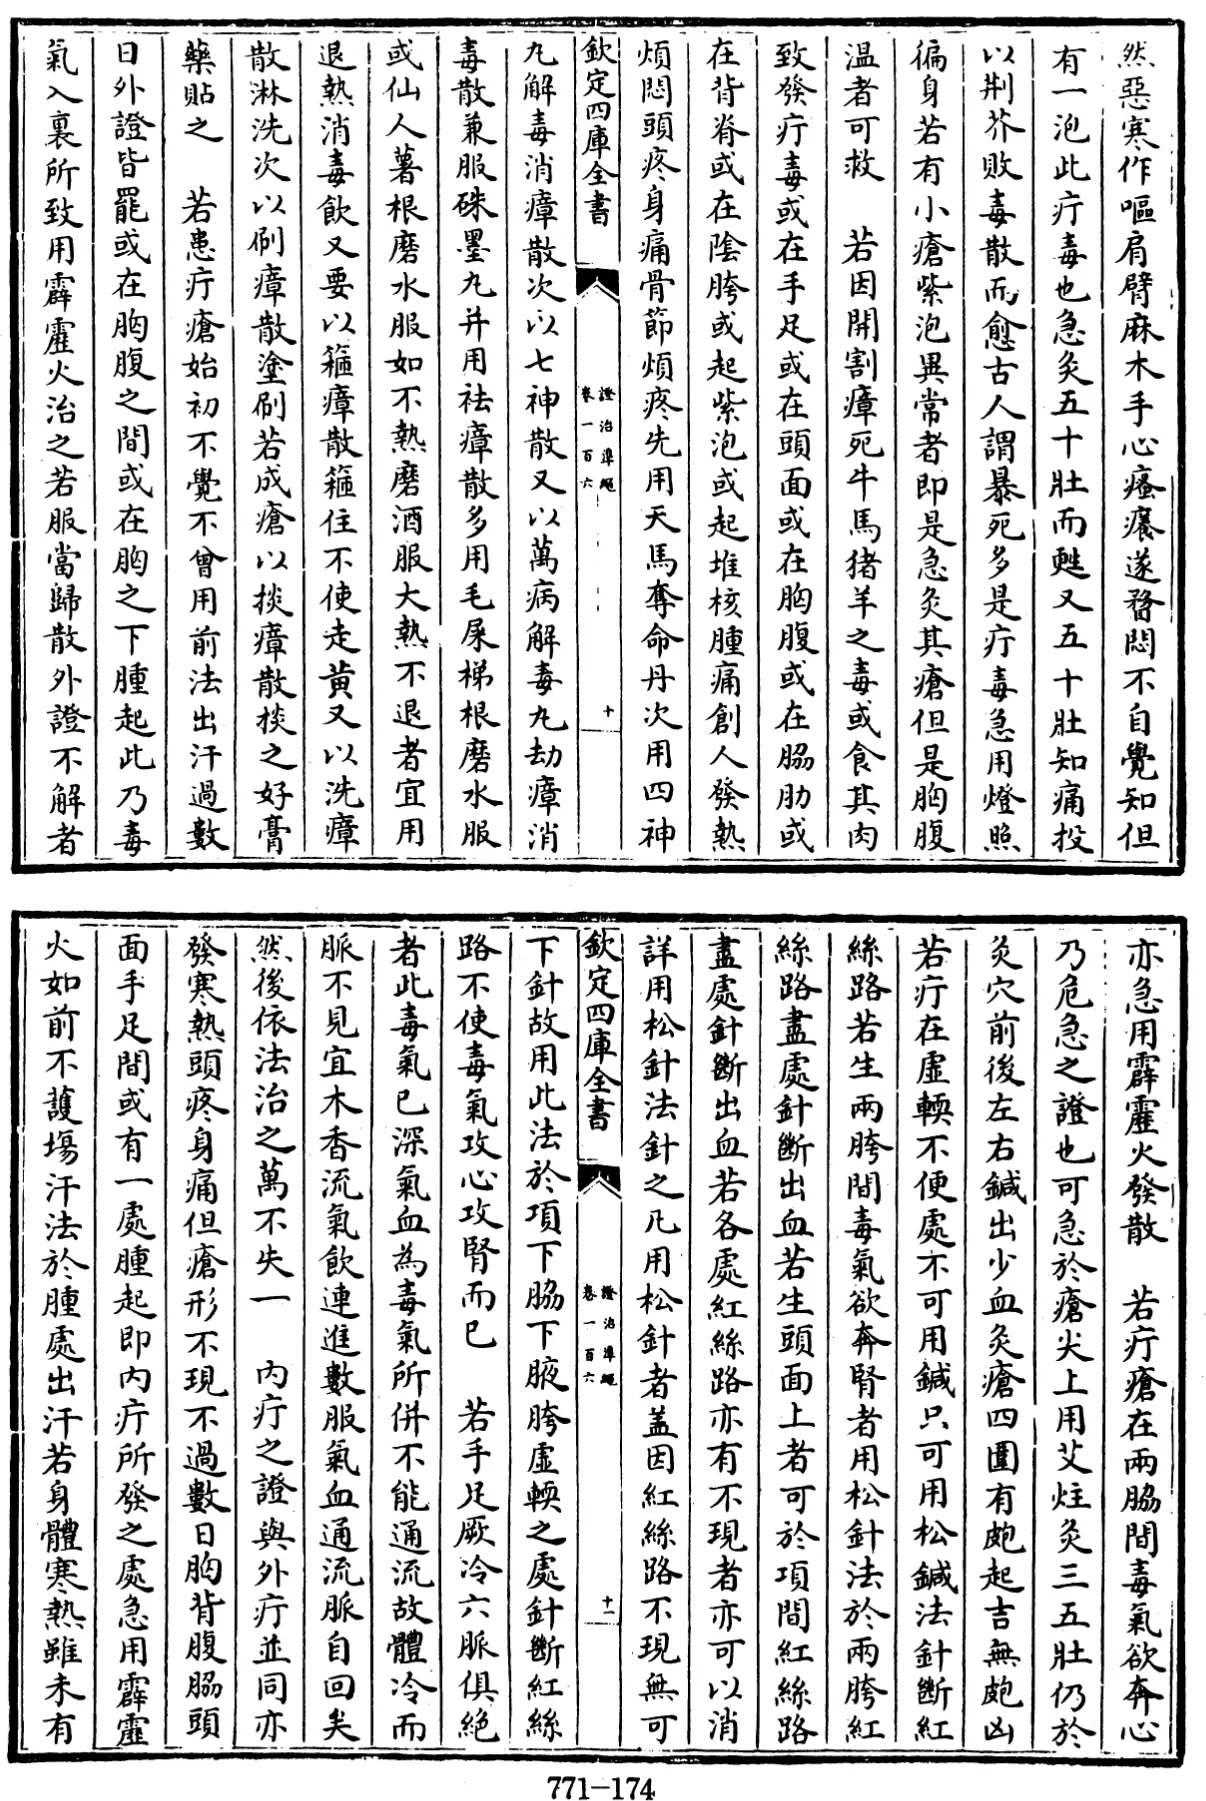 然惡寒作嘔肩臂麻木手心瘙癢遂瞀悶不自覺知但
有一泡此疔毒也急灸五十壯而甦又五十壯知痛投
以荆芥敗毒散而愈古人謂暴死多是疔毒急用燈照
徧身若有小瘡紫泡異常者即是急灸其瘡但是胸腹
温者可救　若因開割瘴死牛馬猪羊之毒或食其肉
致發疔毒或在手足或在頭面或在胸腹或在脇肋或
在背脊或在陰胯或起紫泡或起堆核腫痛創人發熱
煩悶頭疼身痛骨節煩疼先用天馬奪命丹次用四神
欽定四庫全書
證治準繩
卷一百六
十
丸解毒消瘴散次以七神散又以萬病解毒丸劫瘴消
毒散兼服硃墨丸并用祛瘴散多用毛屎梯根磨水服
或仙人薯根磨水服如不熱磨酒服大熱不退者宜用
退熱消毒飲又要以箍瘴散箍住不使走黄又以洗瘴
散淋洗次以刷瘴散塗刷若成瘡以掞瘴散掞之好膏
藥貼之　若患疔瘡始初不覺不曾用前法出汗過數
日外證皆罷或在胸腹之間或在胸之下腫起此乃毒
氣入裏所致用霹靂火治之若服當歸散外證不解者
亦急用霹靂火發散　若疔瘡在兩脇間毒氣欲奔心
乃危急之證也可急於瘡尖上用艾炷灸三五壯仍於
灸穴前後左右鍼出少血灸瘡四圍有皰起吉無皰凶
若疔在虛輭不便處不可用鍼只可用松鍼法針斷紅
絲路若生兩胯間毒氣欲奔腎者用松針法於兩胯紅
絲路盡處針斷出血若生頭面上者可於項間紅絲路
盡處針斷出血若各處紅絲路亦有不現者亦可以消
詳用松針法針之凡用松針者盖因紅絲路不現無可
欽定四庫全書
證治準繩
卷一百六
十一
下針故用此法於項下脇下腋胯虛輭之處針斷紅絲
路不使毒氣攻心攻腎而已　若手足厥冷六脈俱絶
者此毒氣已深氣血為毒氣所併不能通流故體冷而
脈不見宜木香流氣飲連進數服氣血通流脈自回矣
然後依法治之萬不失一　内疔之證與外疔並同亦
發寒熱頭疼身痛但瘡形不現不過數日胸背腹脇頭
面手足間或有一處腫起即内疔所發之處急用霹靂
火如前不護塲汗法於腫處出汗若身體寒熱雖未有
771—174